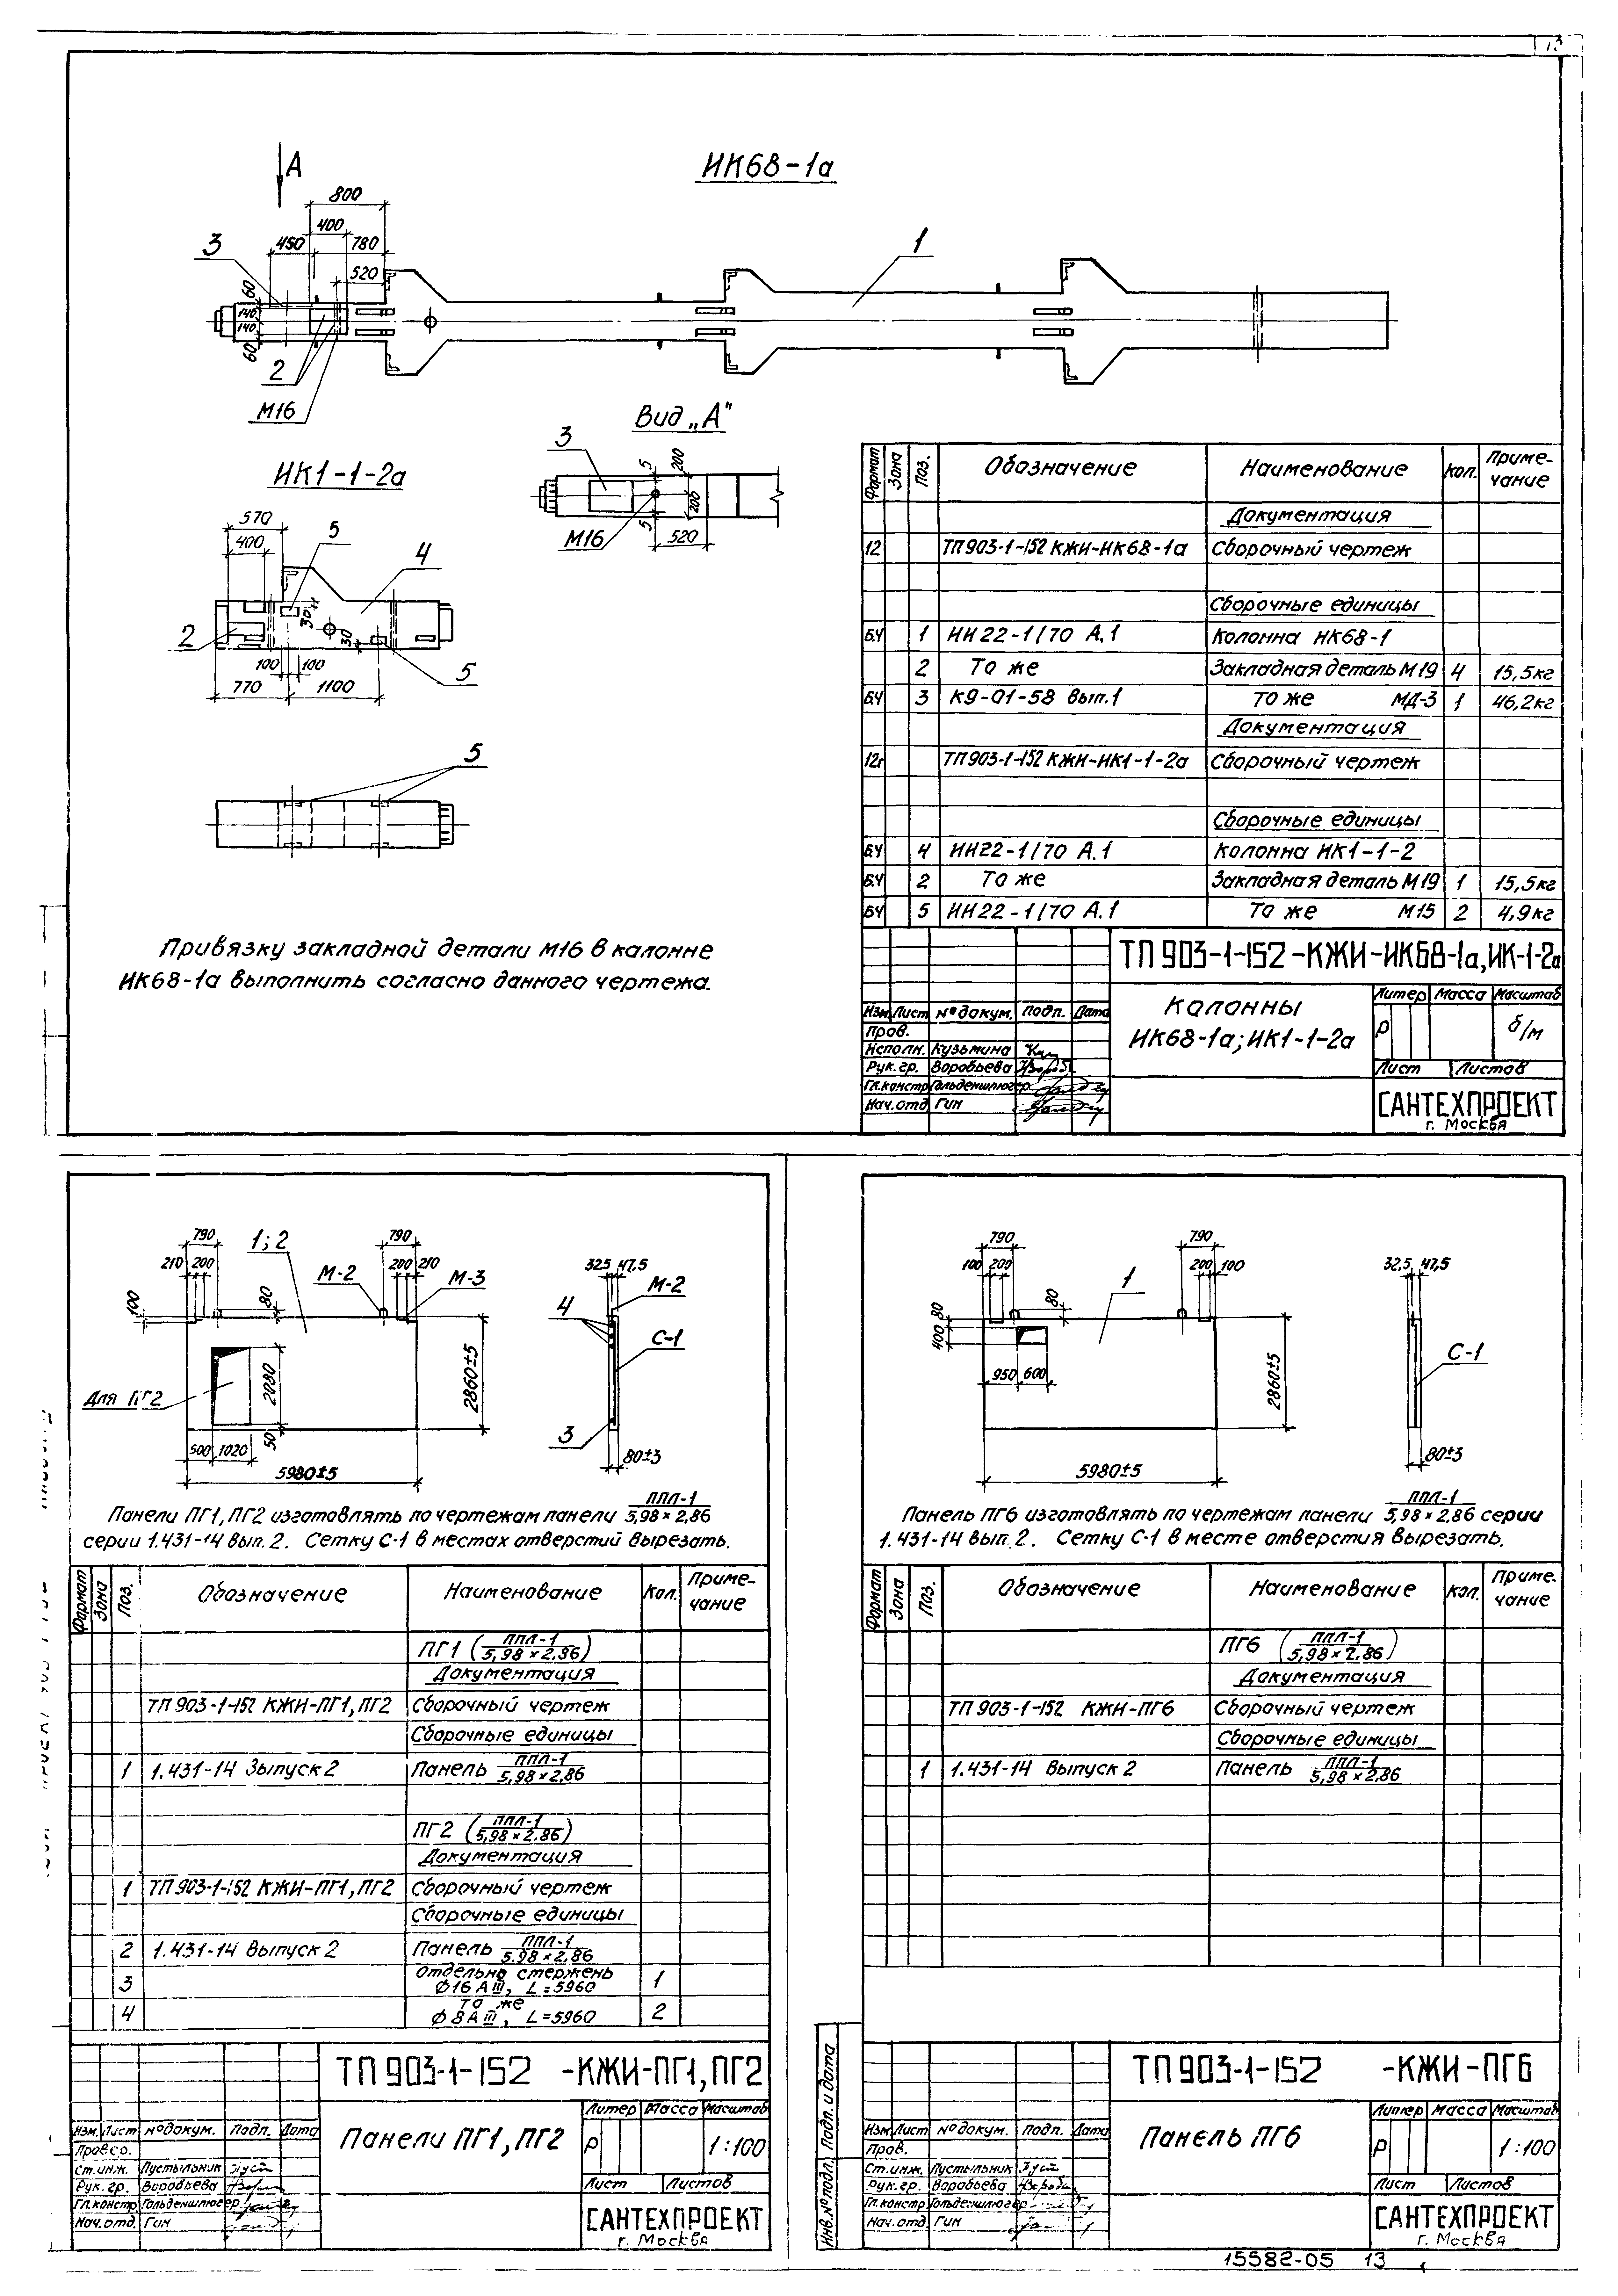 13
ИК68-1а
А
800
400
450
780
520
3
1
60
140
140
60
2
М16
Вид „А"
3
5
200
200
5
М16
520
ИК1-1-2а
570
400
5
4
30
30
2
100
100
5
770
1100
5
Привязку закладной детали М16 в колонне
ИК68-1а выполнить согласно данного чертежа.
Формат Зона Поз. Обозначение Наименование Кол. Приме-
чание
Документация
12 ТП903-1-152 КЖИ-ИК68-1а Сборочный чертеж
Сборочные единицы
БЧ 1 ИИ22-1/70 А.1 Колонна ИК68-1
2 То же Закладная деталь М19 4 15,5кг
БЧ 3 К9-01-58 вып.1 То же МД-3 1 46,2кг
Документация
12г ТП903-1-152 КЖИ-ИК1-1-2а Сборочный чертеж
Сборочные единицы
БЧ 4 ИИ22-1/70 А.1 Колонна ИК1-1-2
БЧ 2 То же Закладная деталь М19 1 15,5кг
БЧ 5 ИИ22-1/70 А.1 То же М15 2 4,9кг
ТП 903-1-152-КЖИ-ИК68-1а,ИК-1-2а
Изм. Лист № докум. Подп. Дата
Пров.
Исполн. Кузьмина
Рук.гр. Воробьева
Гл.констр Гольденшлюгер
Нач.отд Гин
Колонны
ИК68-1а; ИК1-1-2а
Литер Масса Масштаб
Р б/м
Лист Листов
САНТЕХПРОЕКТ
г. Москва
790
1; 2
790
210 200
200 210
М-2
М-3
100
80
Для ПГ2
2080
50
2860±5
500 1020
5980±5
325 47,5
М-2
4
С-1
3
80±3
Панели ПГ1, ПГ2 изготовлять по чертежам панели ППЛ-1
5,98×2,86
серии 1.431-14 вып. 2. Сетку С-1 в местах отверстий вырезать.
Формат Зона Поз. Обозначение Наименование Кол. Приме-
чание
ПГ1 (ППЛ-1
5,98×2,86)
Документация
ТП 903-1-152 КЖИ-ПГ1, ПГ2 Сборочный чертеж
Сборочные единицы
1 1.431-14 Выпуск 2 Панель ППЛ-1
5,98×2,86
ПГ2 (ППЛ-1
5,98×2.86)
Документация
1 ТП 903-1-152 КЖИ-ПГ1, ПГ2 Сборочный чертеж
Сборочные единицы
2 1.431-14 Выпуск 2 Панель ППЛ-1
5.98×2,86
3 Отдельно стержень
Ø16 АIII, L=5960 1
4 То же
Ø 8 АIII, L=5960 2
ТП 903-1-152 -КЖИ-ПГ1, ПГ2
Изм. Лист № докум. Подп. Дата
Провер.
Ст.инж. Пустыльник
Рук.гр. Воробьева
Гл.констр Гольденшлюгер
Нач.отд. Гин
Панели ПГ1, ПГ2
Литер Масса Масштаб
Р 1:100
Лист Листов
САНТЕХПРОЕКТ
г. Москва
790
790
100 200
200 100
80
400
80
1
950 600
2860±5
5980±5
32,5 47,5
С-1
80±3
Панель ПГ6 изготовлять по чертежам панели ППЛ-1
5,98×2,86 серии
1.431-14 вып. 2. Сетку С-1 в месте отверстия вырезать.
Формат Зона Поз. Обозначение Наименование Кол. Приме-
чание
ПГ6 (ППЛ-1
5,98×2,86)
Документация
ТП 903-1-152 КЖИ-ПГ6 Сборочный чертеж
Сборочные единицы
1 1.431-14 Выпуск 2 Панель ППЛ-1
5,98×2,86
Инв.№подл. Подп. и дата
ТП 903-1-152 -КЖИ-ПГ6
Изм. Лист № докум. Подп. Дата
Пров.
Ст.инж. Пустыльник
Рук.гр. Воробьева
Гл.констр Гольденшлюгер
Нач.отд. Гин
Панель ПГ6
Литер Масса Масштаб
Р 1:100
Лист Листов
САНТЕХПРОЕКТ
г. Москва
15582-05 13